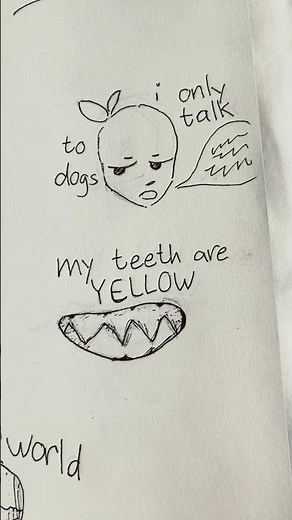 i only
talk
to
dogs
my teeth are
YELLOW
world